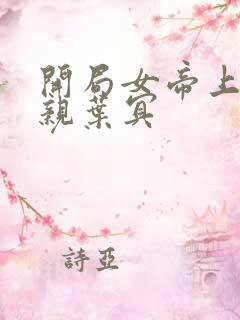 開局女帝上
親葉冥
詩亞